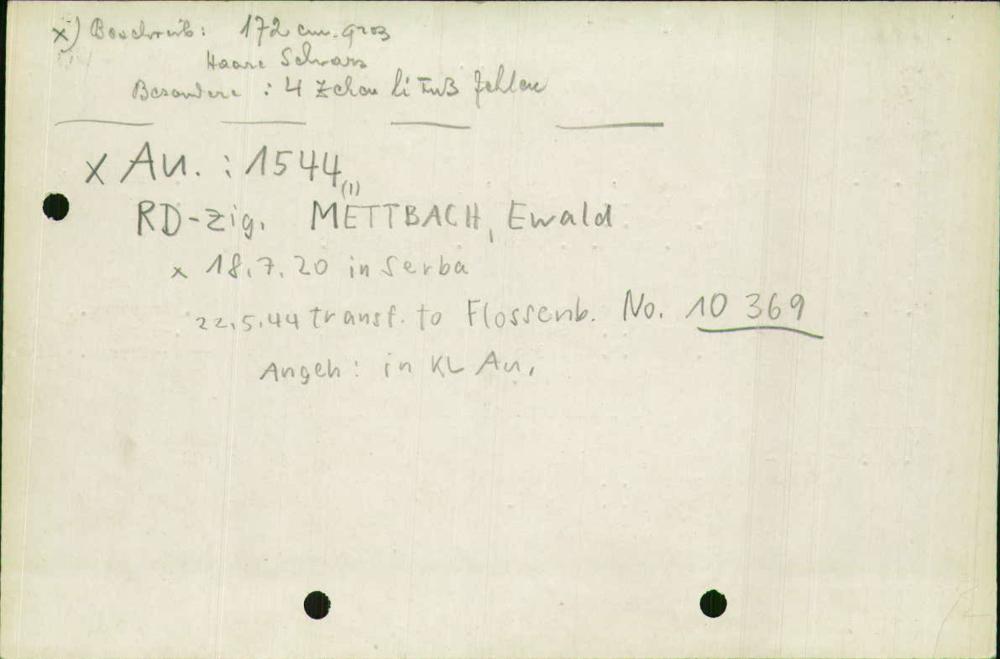 x) Beschreib: 172 cm. groß
Haare Schwarz
Besondere : 4 Zehen li Fuß fehlen
x Au. : 1544 (1)
RD-zig. METTBACH, Ewald
x 18.7.20 in Serba
22.5.44 transf. to Flossenb. No. 10 369
Angeh: in KL Au.